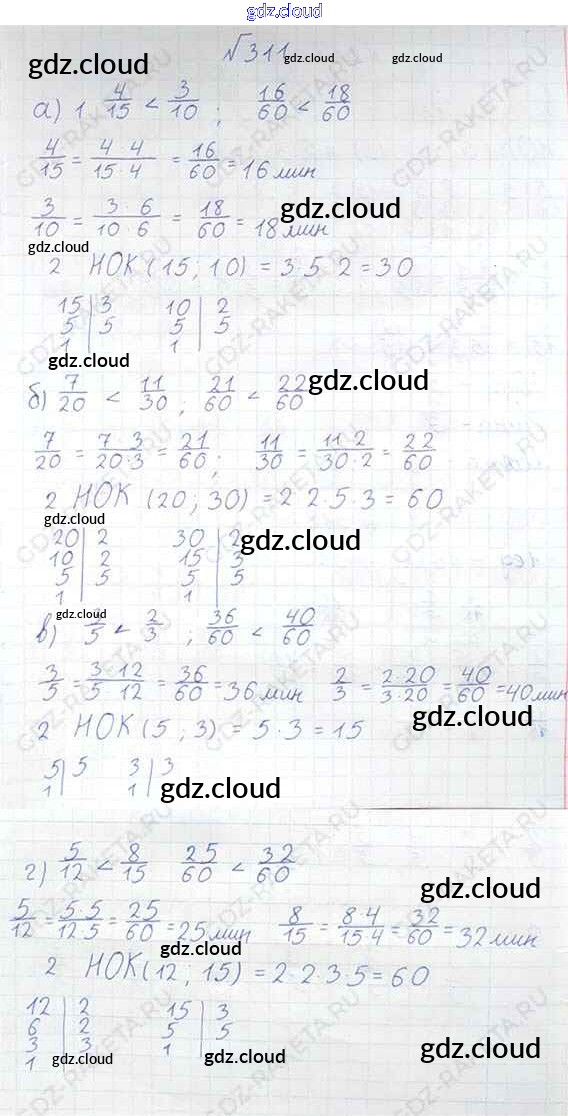 gdz.cloud
№311 gdz.cloud gdz.cloud
gdz.cloud
а) 1 4/15 < 3/10 ; 16/60 < 18/60
4/15 = 4 4/15·4 = 16/60 = 16 мин
3/10 = 3·6/10·6 = 18/60 = 18 мин
gdz.cloud
gdz.cloud
2 НОК (15; 10) = 3·5 2 = 30
15|3 10|2
5|5 5|5
1 1
gdz.cloud
б) 7/20 < 11/30 ; 21/60 < 22/60
gdz.cloud
7/20 = 7·3/20·3 = 21/60 ; 11/30 = 11·2/30·2 = 22/60
2 НОК (20; 30) = 2 2·5·3 = 60
gdz.cloud
20|2 30|2
10|2 15|3
5|5 5|5
1 1
gdz.cloud
gdz.cloud
в) /5 < 2/3 ; 36/60 < 40/60
3/5 = 3·12/5 12 = 36/60 = 36 мин 2/3 = 2·20/3·20 = 40/60 = 40 мин
gdz.cloud
2 НОК (5; 3) = 5·3 = 15
5|5 3|3
1 1
gdz.cloud
г) 5/12 < 8/15 25/60 < 32/60
gdz.cloud
5/12 = 5·5/12·5 = 25/60 = 25 мин 8/15 = 8·4/15 4 = 32/60 = 32 мин
gdz.cloud
2 НОК (12; 15) = 2·2·3·5 = 60
12|2 15|3
6|2 5|5
3|3 1
1
gdz.cloud gdz.cloud gdz.cloud
GDZ-RAKETA.RU